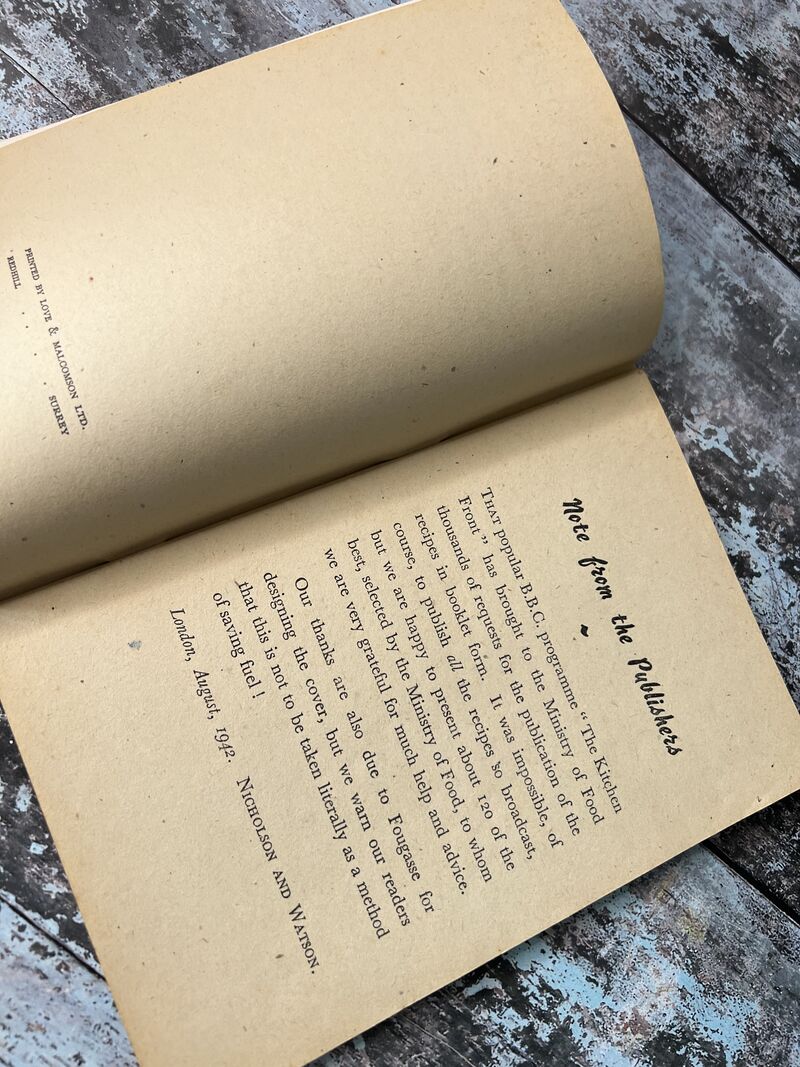 PRINTED BY LOVE & MALCOMSON LTD.
REDHILL . . . . SURREY
Note from the Publishers
~
THAT popular B.B.C. programme “ The Kitchen
Front ”, has brought to the Ministry of Food
thousands of requests for the publication of the
recipes in booklet form. It was impossible, of
course, to publish all the recipes so broadcast,
but we are happy to present about 120 of the
best, selected by the Ministry of Food, to whom
we are very grateful for much help and advice.
Our thanks are also due to Fougasse for
designing the cover, but we warn our readers
that this is not to be taken literally as a method
of saving fuel !
NICHOLSON AND WATSON.
London, August, 1942.